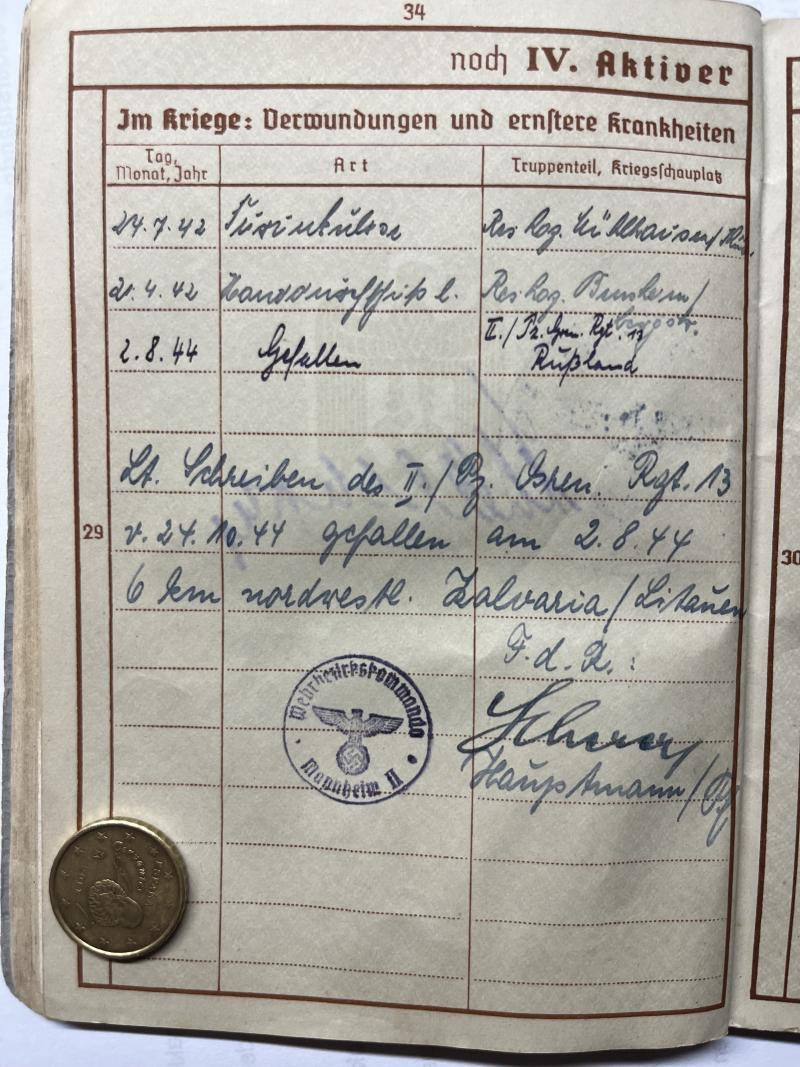 34
noch IV. Aktiver
Im Kriege: Verwundungen und ernstere Krankheiten
Tag, Monat, Jahr
Art
Truppenteil, Kriegsschauplatz
24.7.42 Res Laz.
42 l. Res Laz. Bensheim/
2.8.44 Gefallen II./Pz. Gren. Rgt. 13
Rußland
Lt. Schreiben des II./Pz. Rgt. 13
29
v. 24.10.44 gefallen am 2.8.44
6 km nordwestl. Kalvaria/Litauen
F.d.R.:
Wehrbezirkskommando
Mannheim II
Hauptmann/
30
Cervantes